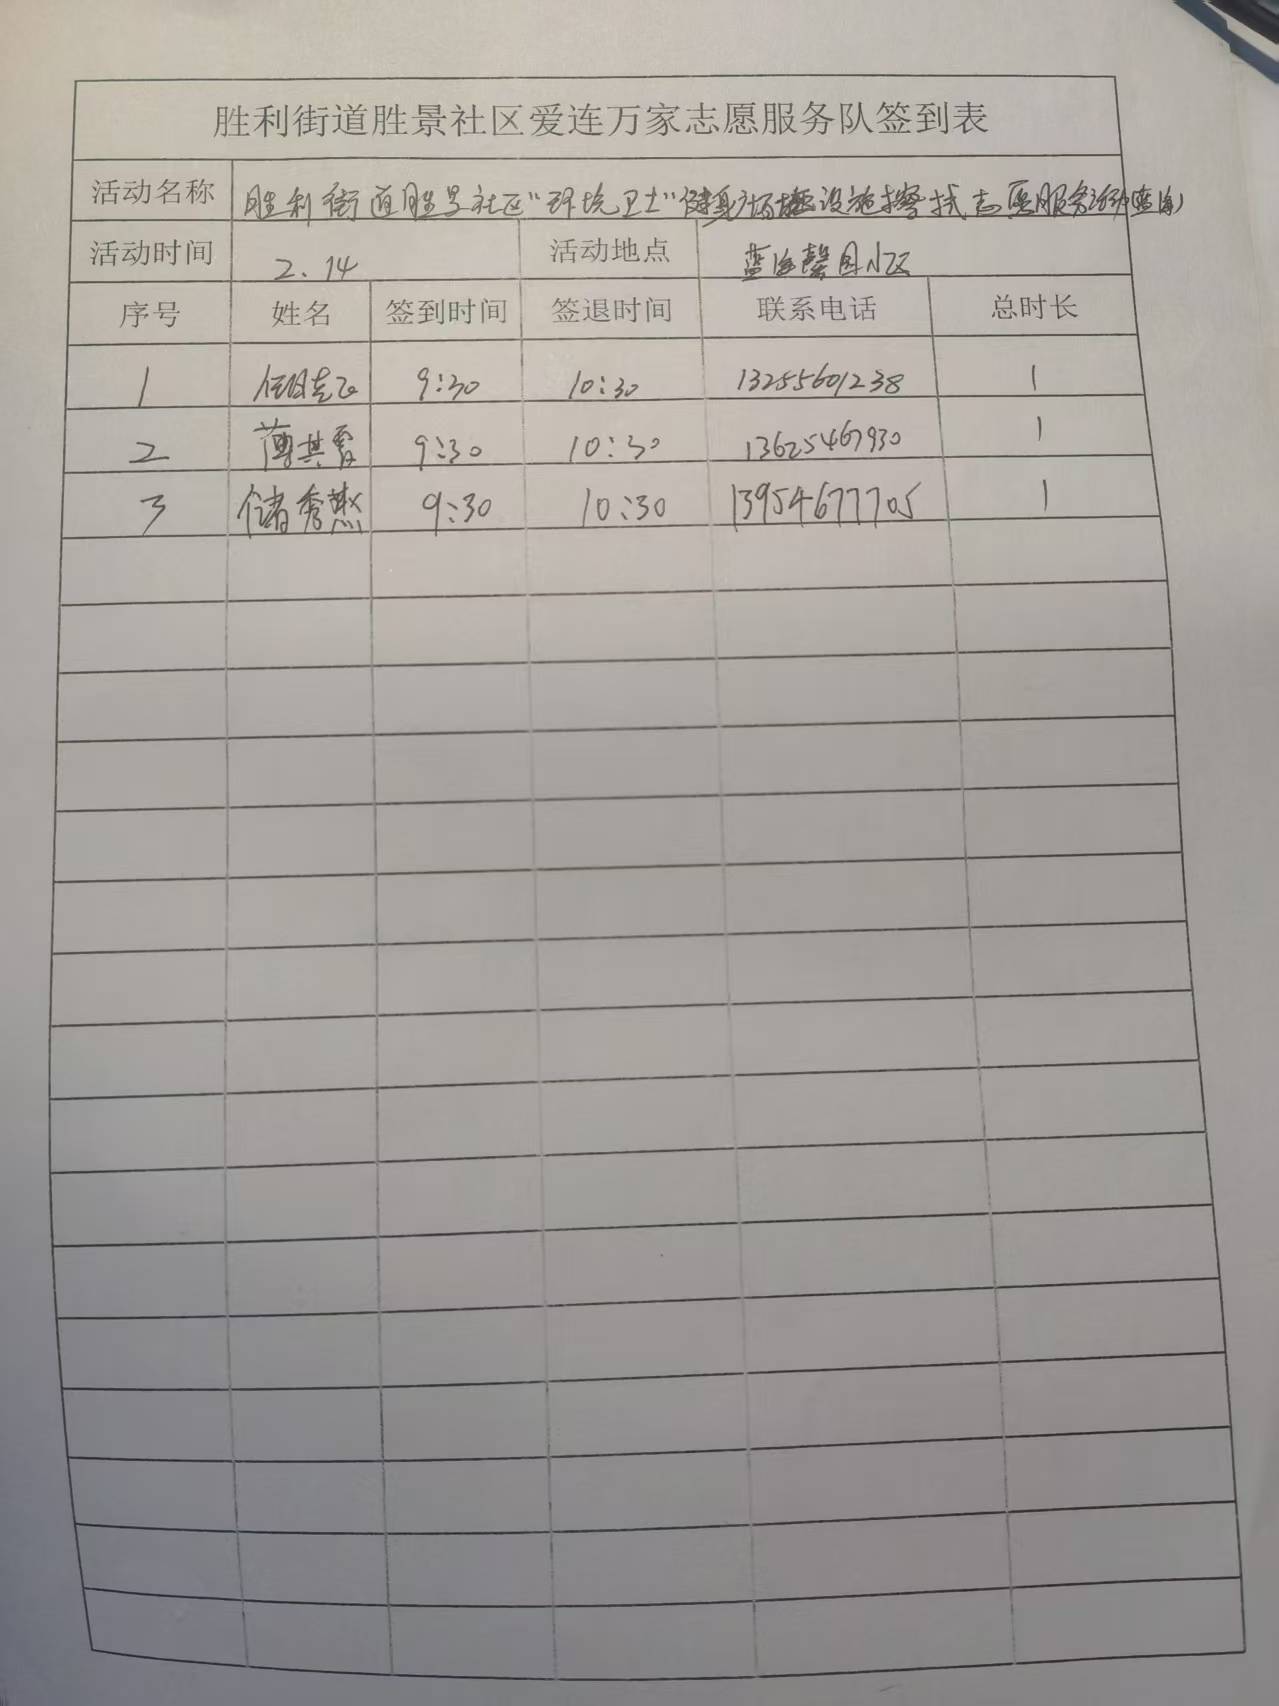 胜利街道胜景社区爱连万家志愿服务队签到表
活动名称 胜利街道胜景社区"环境卫士"健身广场 设施擦拭志愿服务活动(蓝海)
活动时间 2.14 活动地点 蓝海馨园小区
序号 姓名 签到时间 签退时间 联系电话 总时长
1 9:30 10:30 13255601238 1
2 薄其雪 9:30 10:30 13625467930 1
3 储秀燕 9:30 10:30 13954677705 1